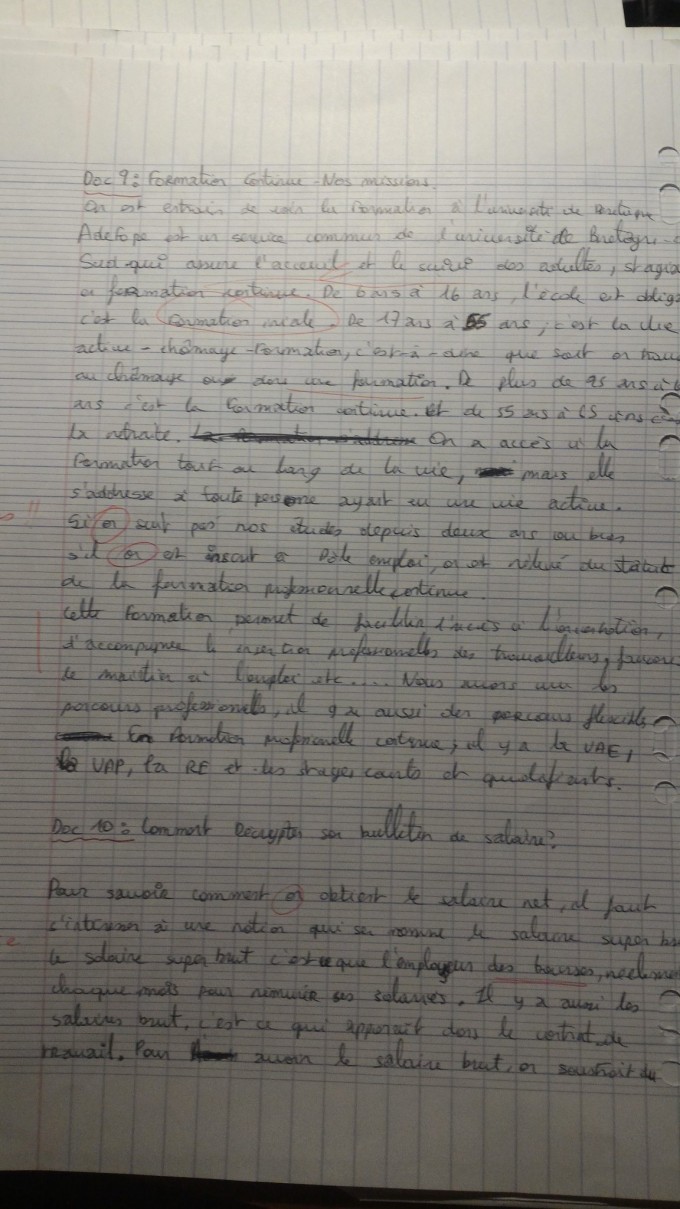 Doc 9: Formation Continue - Nos missions.
On est entrain de voir la formation à l'université de
Adefope est un service commun de l'université de Bretagne-
Sud qui assure l'accueil et le suivie des adultes, stagia
en formation continue. De 6 ans à 16 ans, l'école est oblig
c'est la formation iniale. De 17 ans à 55 ans, c'est la vie
active - chômage - formation, c'est-à-dire que soit on
au chômage dans une formation. De plus de 25 ans à
ans c'est la formation continue. Et de 55 ans à 65 ans
la retraite. On a accès à la
formation tout au long de la vie, mais elle
s'addresse à toute personne ayant eu une vie active.
Si on suit pas nos études depuis deux ans ou bien
si on est inscrit à Pôle emploi, on est relevé du statut
de la formation professionnelle continue.
Cette formation permet de faciliter l'accès à l'orientation,
d'accompagner l'insertion professionnelles des travailleurs, favori
le maintien à l'emploi etc.... Nous avons les
parcours professionnels, il y a aussi des parcours flexibles
En formation professionnelle continue, il y a la VAE,
la VAP, la RE et les stages courts et qualifiants.
Doc 10: Comment Décrypter son bulletin de salaire?
Pour savoir comment on obtient le salaire net, il faut
s'intéresser à une notion qui se nomme le salaire super br
le salaire super brut c'est que l'employeur des
chaque mois pour rémunérer ses salariés. Il y a aussi les
salaires brut, c'est ce qui apparait dans le contrat de
travail. Pour avoir le salaire brut, on soustrait du